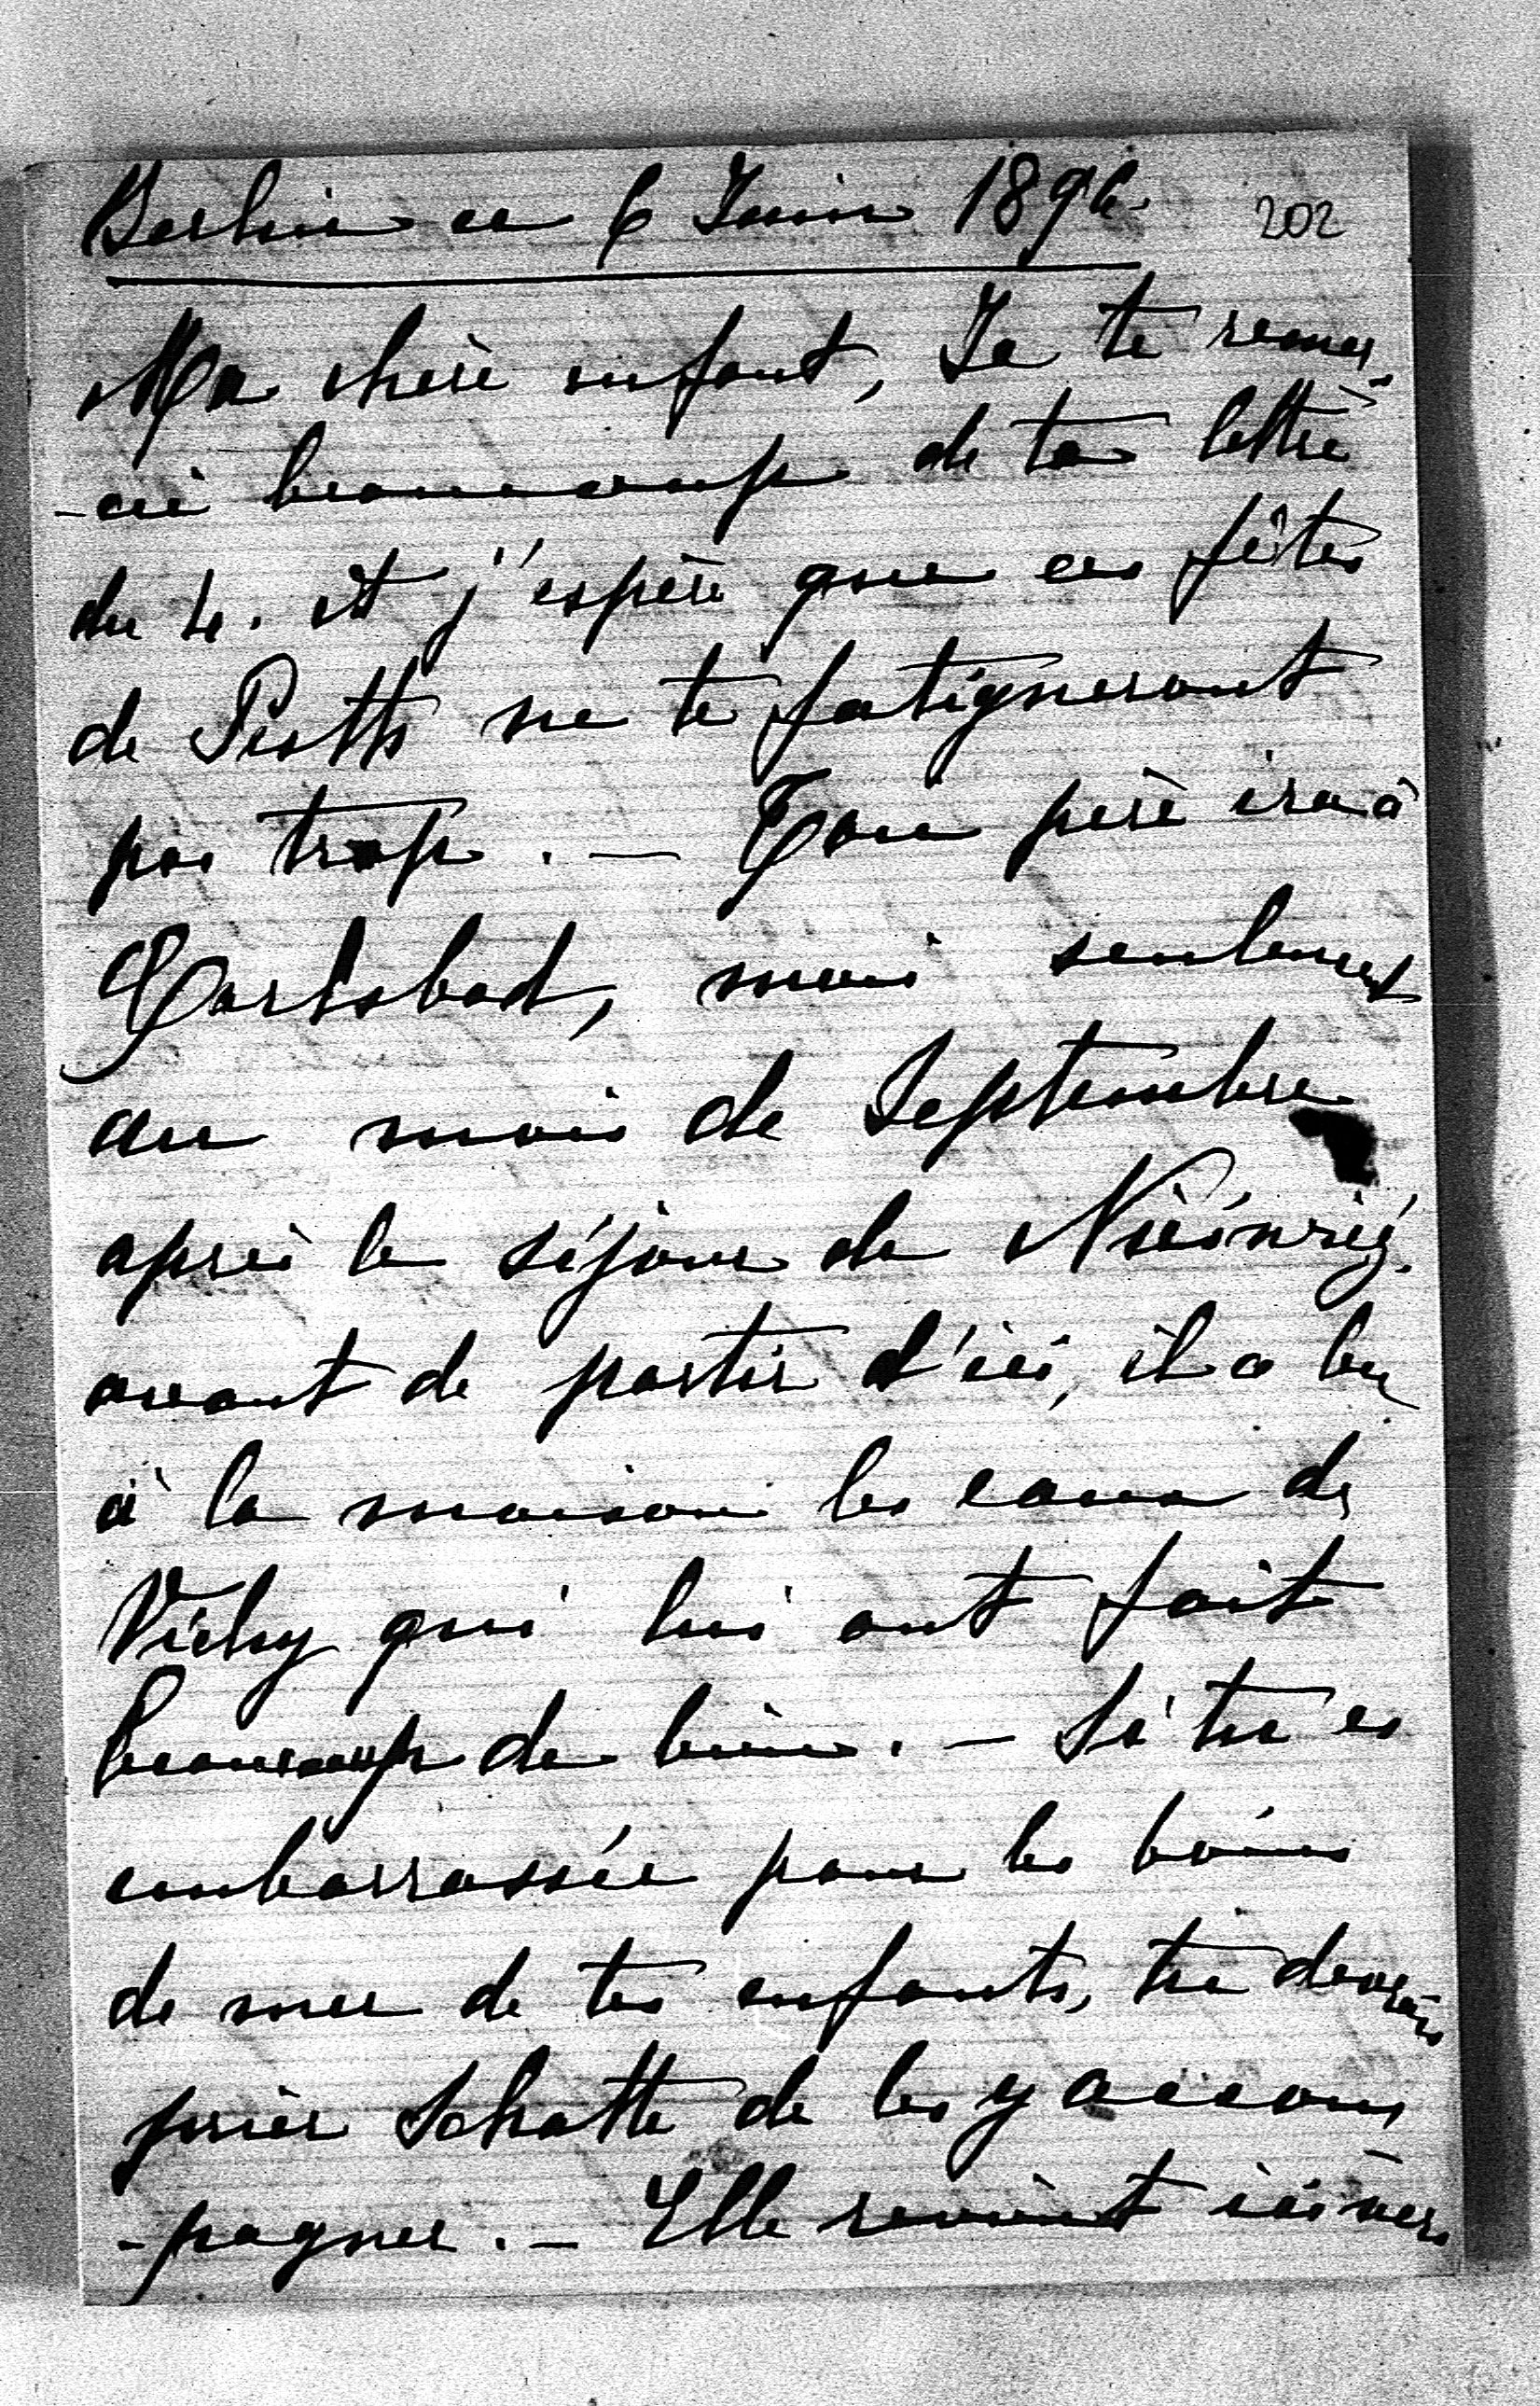 Berlin ce 6 Juin 1896.
202
Ma chère enfant, Je te remer
-cie beaucoup de ta lettre
du 4. et j'espère que ces fêtes
de Pesth ne te fatigueront
pas trop. — Ton père ira à
Carlsbad, mais seulement
au mois de Septembre
après le séjour de
avant de partir d'ici, il a bu
à la maison les eaux de
Vichy qui lui ont fait
beaucoup de bien. — Si tu es
embarrassée pour les bains
de mer de tes enfants, tu devrais
prier Schatte de les y accom
-pagner. — Elle revient ici vers